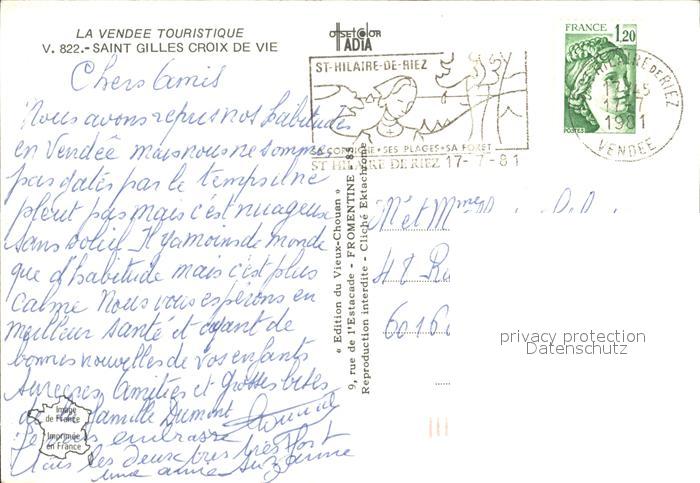 LA VENDEE TOURISTIQUE
V. 822.- SAINT GILLES CROIX DE VIE
offset color
IADIA
Chers Amis
Nous avons repris nos habitudes
en Vendée mais nous ne sommes
pas gatés par le temps il ne
pleut pas mais c'est nuageux
sans soleil. Il y a moins de monde
que d'habitude mais c'est plus
calme Nous vous espérons en
meilleur santé et ayant de
bonnes nouvelles de vos enfants
Amitiés et grosses bises
de la famille Dumont
Je vous embrasse
tous les deux très très fort
une amie Suzanne
ST-HILAIRE-DE-RIEZ
CORNICHE • SES PLAGES • SA FORET
ST HILAIRE DE RIEZ 17-7-81
FRANCE 1,20
POSTES
HILAIRE DE RIEZ
17-7
1981
VENDEE
« Edition du Vieux-Chouan »
9, rue de l'Estacade - FROMENTINE 85
Reproduction interdite - Cliché Ektachrome
M et Mme D. D.
47 Ru
6016
privacy protection
Datenschutz
Image
de France
Imprimée
en France